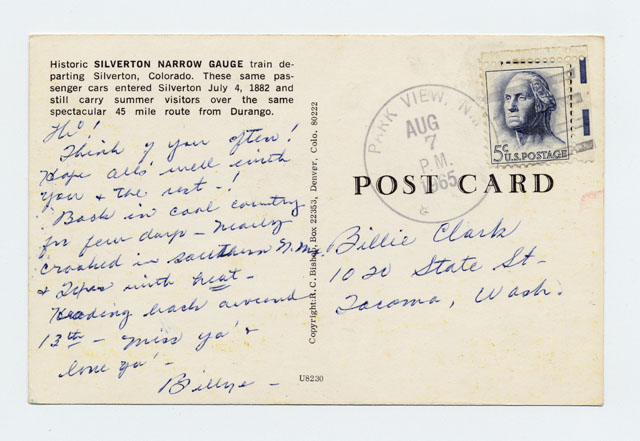 Historic SILVERTON NARROW GAUGE train de-
parting Silverton, Colorado. These same pas-
senger cars entered Silverton July 4, 1882 and
still carry summer visitors over the same
spectacular 45 mile route from Durango.
Hi!
Think of you often!
Hope all's well with
you & the rest -!
Back in cool country
for few days - nearly
croaked in southern N.M.
& Texas with heat -
Heading back around
13th - miss ya' &
love ya' -
Billye -
Copyright: R. C. Bishop, Box 22353, Denver, Colo. 80222
U8230
PARK VIEW, N.
AUG
7
P.M.
1965
5¢ U.S. POSTAGE
POST CARD
Billie Clark
1020 State St.
Tacoma, Wash.